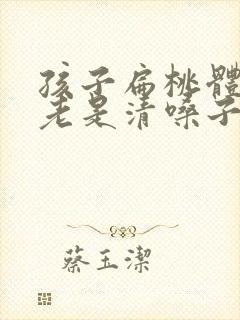 孩子扁桃體
老是清嗓子
蔡玉潔